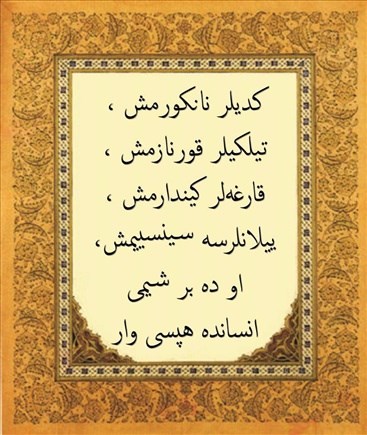 كدیلر نانكورمش ،
تیلكیلر قورنازمش ،
قارغه‌لر كیندارمش ،
ییلانلرسه سینسییمش،
او ده بر شیمی
انسانده هپسی وار